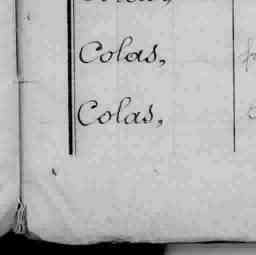 Colas,
Colas,